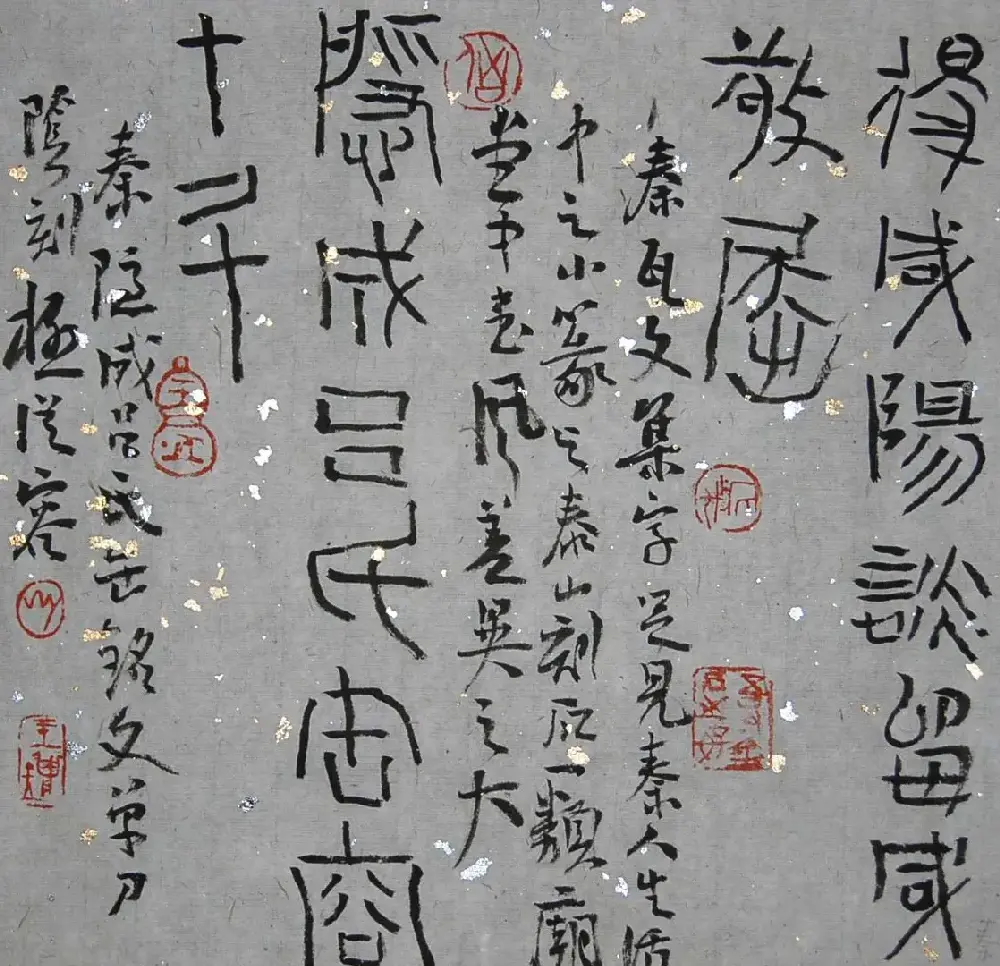 得咸陽談留咸
敬屈
秦瓦文集字足見秦人生活
中之小篆與泰山刻石一類廟
堂中書風差異之大
隱成呂氏缶容
十二斗
秦隱成呂氏缶銘文單刀
陰刻極從容